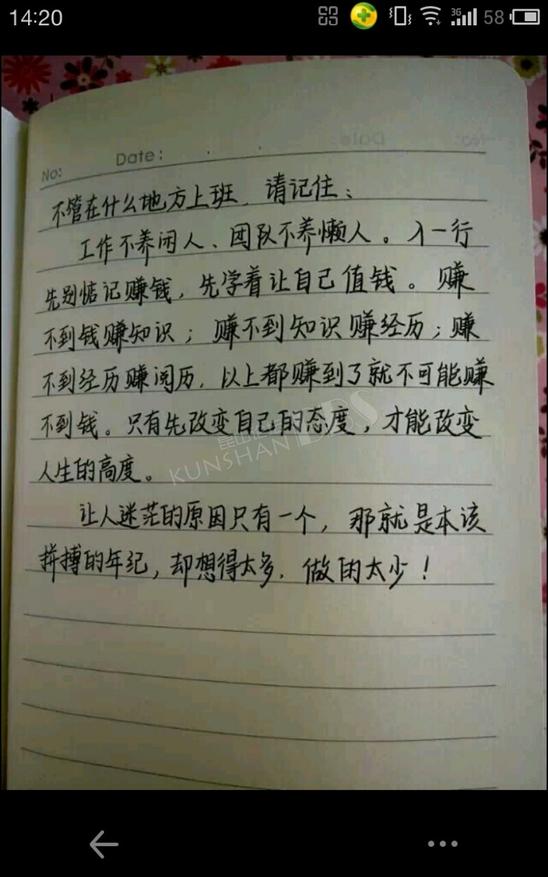 14:20
3G
58
No:
Date:
不管在什么地方上班,请记住:
工作不养闲人、团队不养懒人。入一行
先别惦记赚钱,先学着让自己值钱。赚
不到钱赚知识;赚不到知识赚经历;赚
不到经历赚阅历,以上都赚到了就不可能赚
不到钱。只有先改变自己的态度,才能改变
人生的高度。
KUNSHAN BBS
让人迷茫的原因只有一个,那就是本该
拼搏的年纪,却想得太多,做的太少!